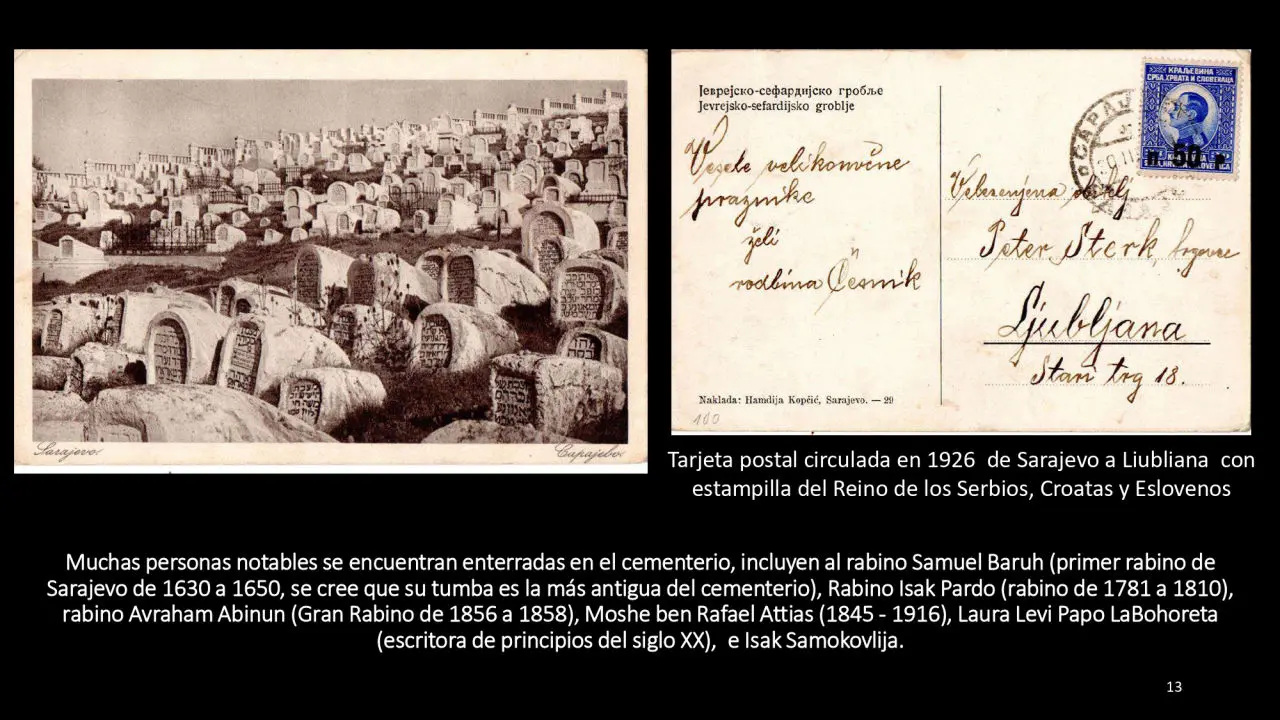 Sarajevo.
Сарајево.
Јеврејско-сефардијско гробље
Jevrejsko-sefardijsko groblje
Vesele velikonočne
praznike
želi
rodbina Česnik
Naklada: Hamdija Kopčić, Sarajevo. — 29
100
КРАЉЕВИНА
СРБА, ХРВАТА И СЛОВЕНАЦА
50
Peter Šterk, trgovec
Ljubljana
Stari trg 18.
Tarjeta postal circulada en 1926 de Sarajevo a Liubliana con
estampilla del Reino de los Serbios, Croatas y Eslovenos
Muchas personas notables se encuentran enterradas en el cementerio, incluyen al rabino Samuel Baruh (primer rabino de
Sarajevo de 1630 a 1650, se cree que su tumba es la más antigua del cementerio), Rabino Isak Pardo (rabino de 1781 a 1810),
rabino Avraham Abinun (Gran Rabino de 1856 a 1858), Moshe ben Rafael Attias (1845 - 1916), Laura Levi Papo LaBohoreta
(escritora de principios del siglo XX), e Isak Samokovlija.
13